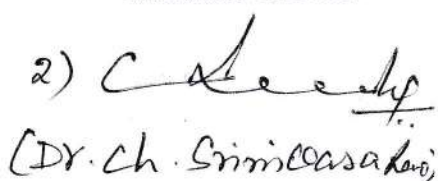 2)
(Dr. Ch. Srinivasa Rao)